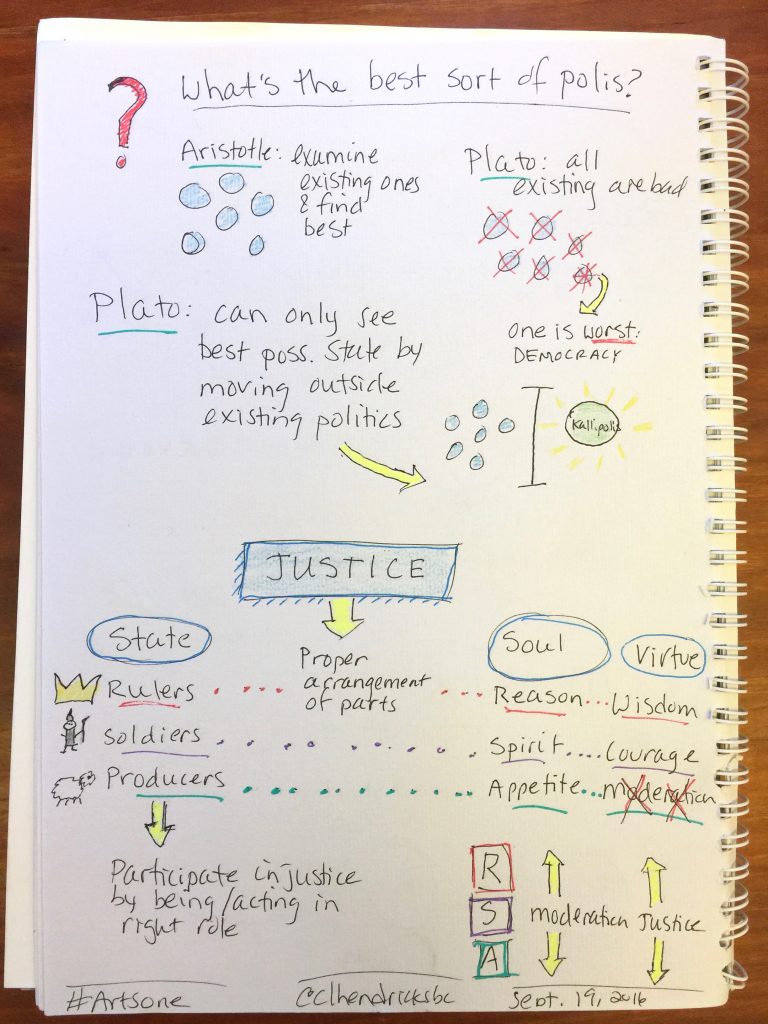 ?
What's the best sort of polis?
Aristotle: examine
existing ones
& find
best
Plato: all
existing are bad
One is worst:
DEMOCRACY
Plato: can only see
best poss. state by
moving outside
existing politics
Kallipolis
JUSTICE
Proper
arrangement
of parts
State
Soul
Virtue
Rulers ... Reason ... Wisdom
Soldiers ... Spirit .... Courage
Producers ... Appetite ... Moderation
Participate in justice
by being/acting in
right role
R
S
A
moderation
Justice
#Artsone
@clhendricksbc
Sept. 19, 2016